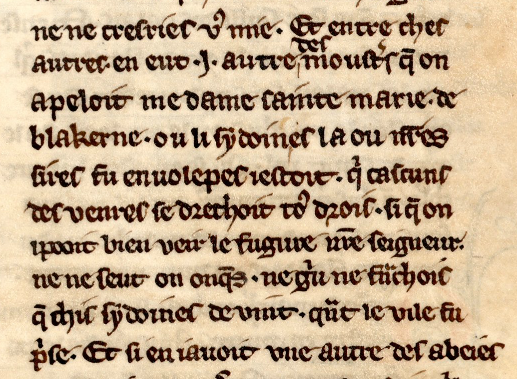 ne ne cresries vꝰ mie. Et entre ches
autres en eut .j. autre des moustꝰs q̄ on
apeloit medame sainte marie de
blakerne. ou li sydoines la ou nr̄es
sires fu envolepes i estoit. qi cascuns
des venres se drechoit toꝰ drois. si q̄ on
i pooit bien veir le figure nr̄e seigneur.
ne ne seut on onq̄s. ne griu ne franchois
q̄ chis sydoines devint. qn̄t le vile fu
p̄se. Et si en i avoit vne autre des abeies